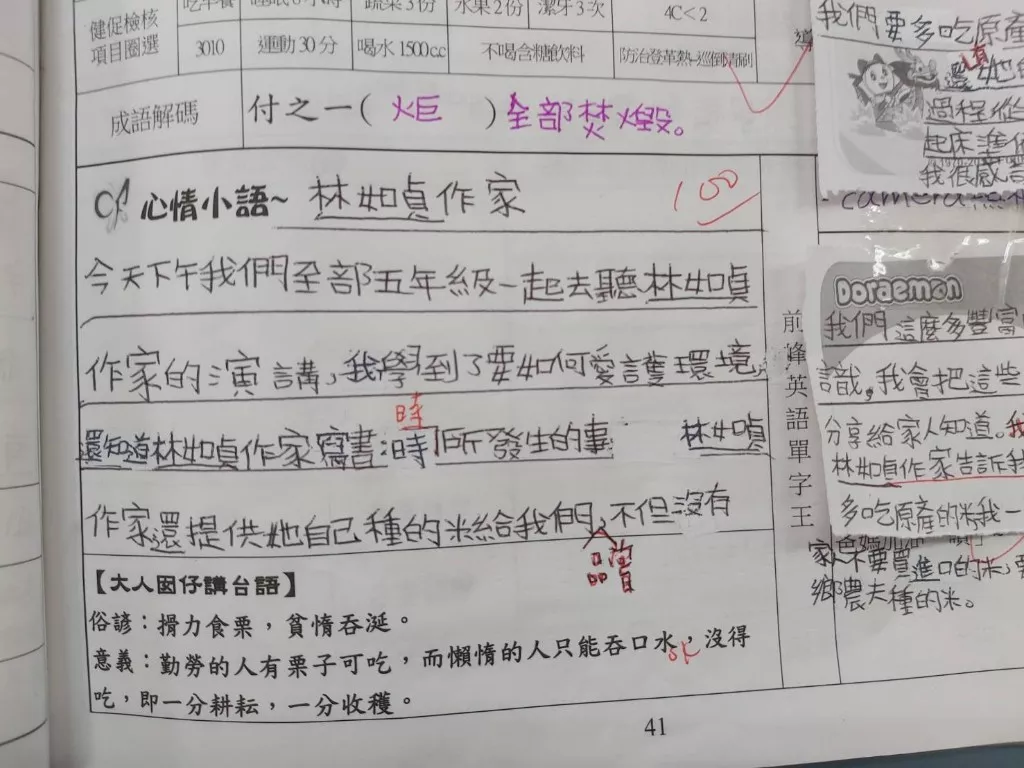 健促檢核
項目圈選
吃早餐
蔬菜3份
水果2份
潔牙3次
4C<2
3010
運動30分
喝水1500cc
不喝含糖飲料
防治登革熱-巡倒清刷
導
成語解碼
付之一(炬)全部焚燬。
心情小語~林如貞作家
100
今天下午我們全部五年級一起去聽林如貞
作家的演講,我學到了要如何愛護環境
還知道林如貞作家寫書時所發生的事 林如貞
時
作家還提供她自己種的米給我們,不但沒有
品嘗
【大人囡仔講台語】
俗諺:搰力食栗,貧惰吞涎。
意義:勤勞的人有栗子可吃,而懶惰的人只能吞口水,沒得
吃,即一分耕耘,一分收穫。
ok
41
前鋒英語單字王
我們要多吃原產
過程從
起床準備
我很感
camera
Doraemon
我們這麼多豐富
識,我會把這些
分享給家人知道。
林如貞作家告訴我
多吃原產的米我一
不要買進口的米,
鄉農夫種的米。